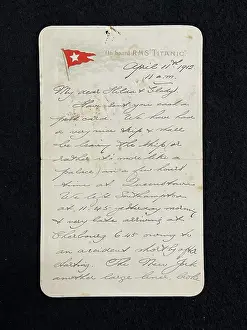 On board R.M.S. "TITANIC"
April 11th 1912
11 a.m.
My dear
you each a
We have had
a very nice trip & shall
be leaving the ship, or
rather it's more like a
palace, in a few hours
time at Queenstown.
We left Southampton
at 11.45 yesterday morng
& very late arriving at
Cherbourg 6.45 owing to
an accident shortly after
starting. The New York
another large liner, broke